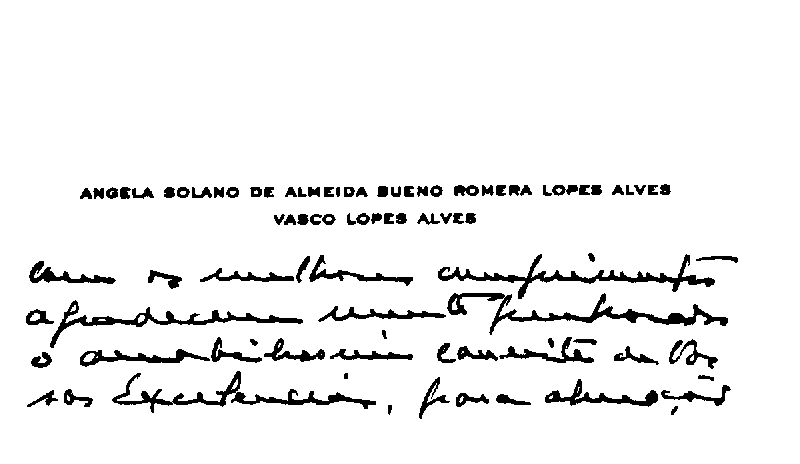 ANGELA SOLANO DE ALMEIDA BUENO ROMERA LOPES ALVES
VASCO LOPES ALVES
com os melhores cumprimentos
agradecem muito penhorados
o amabilissimo convite de Vos
sas Excelencias, para